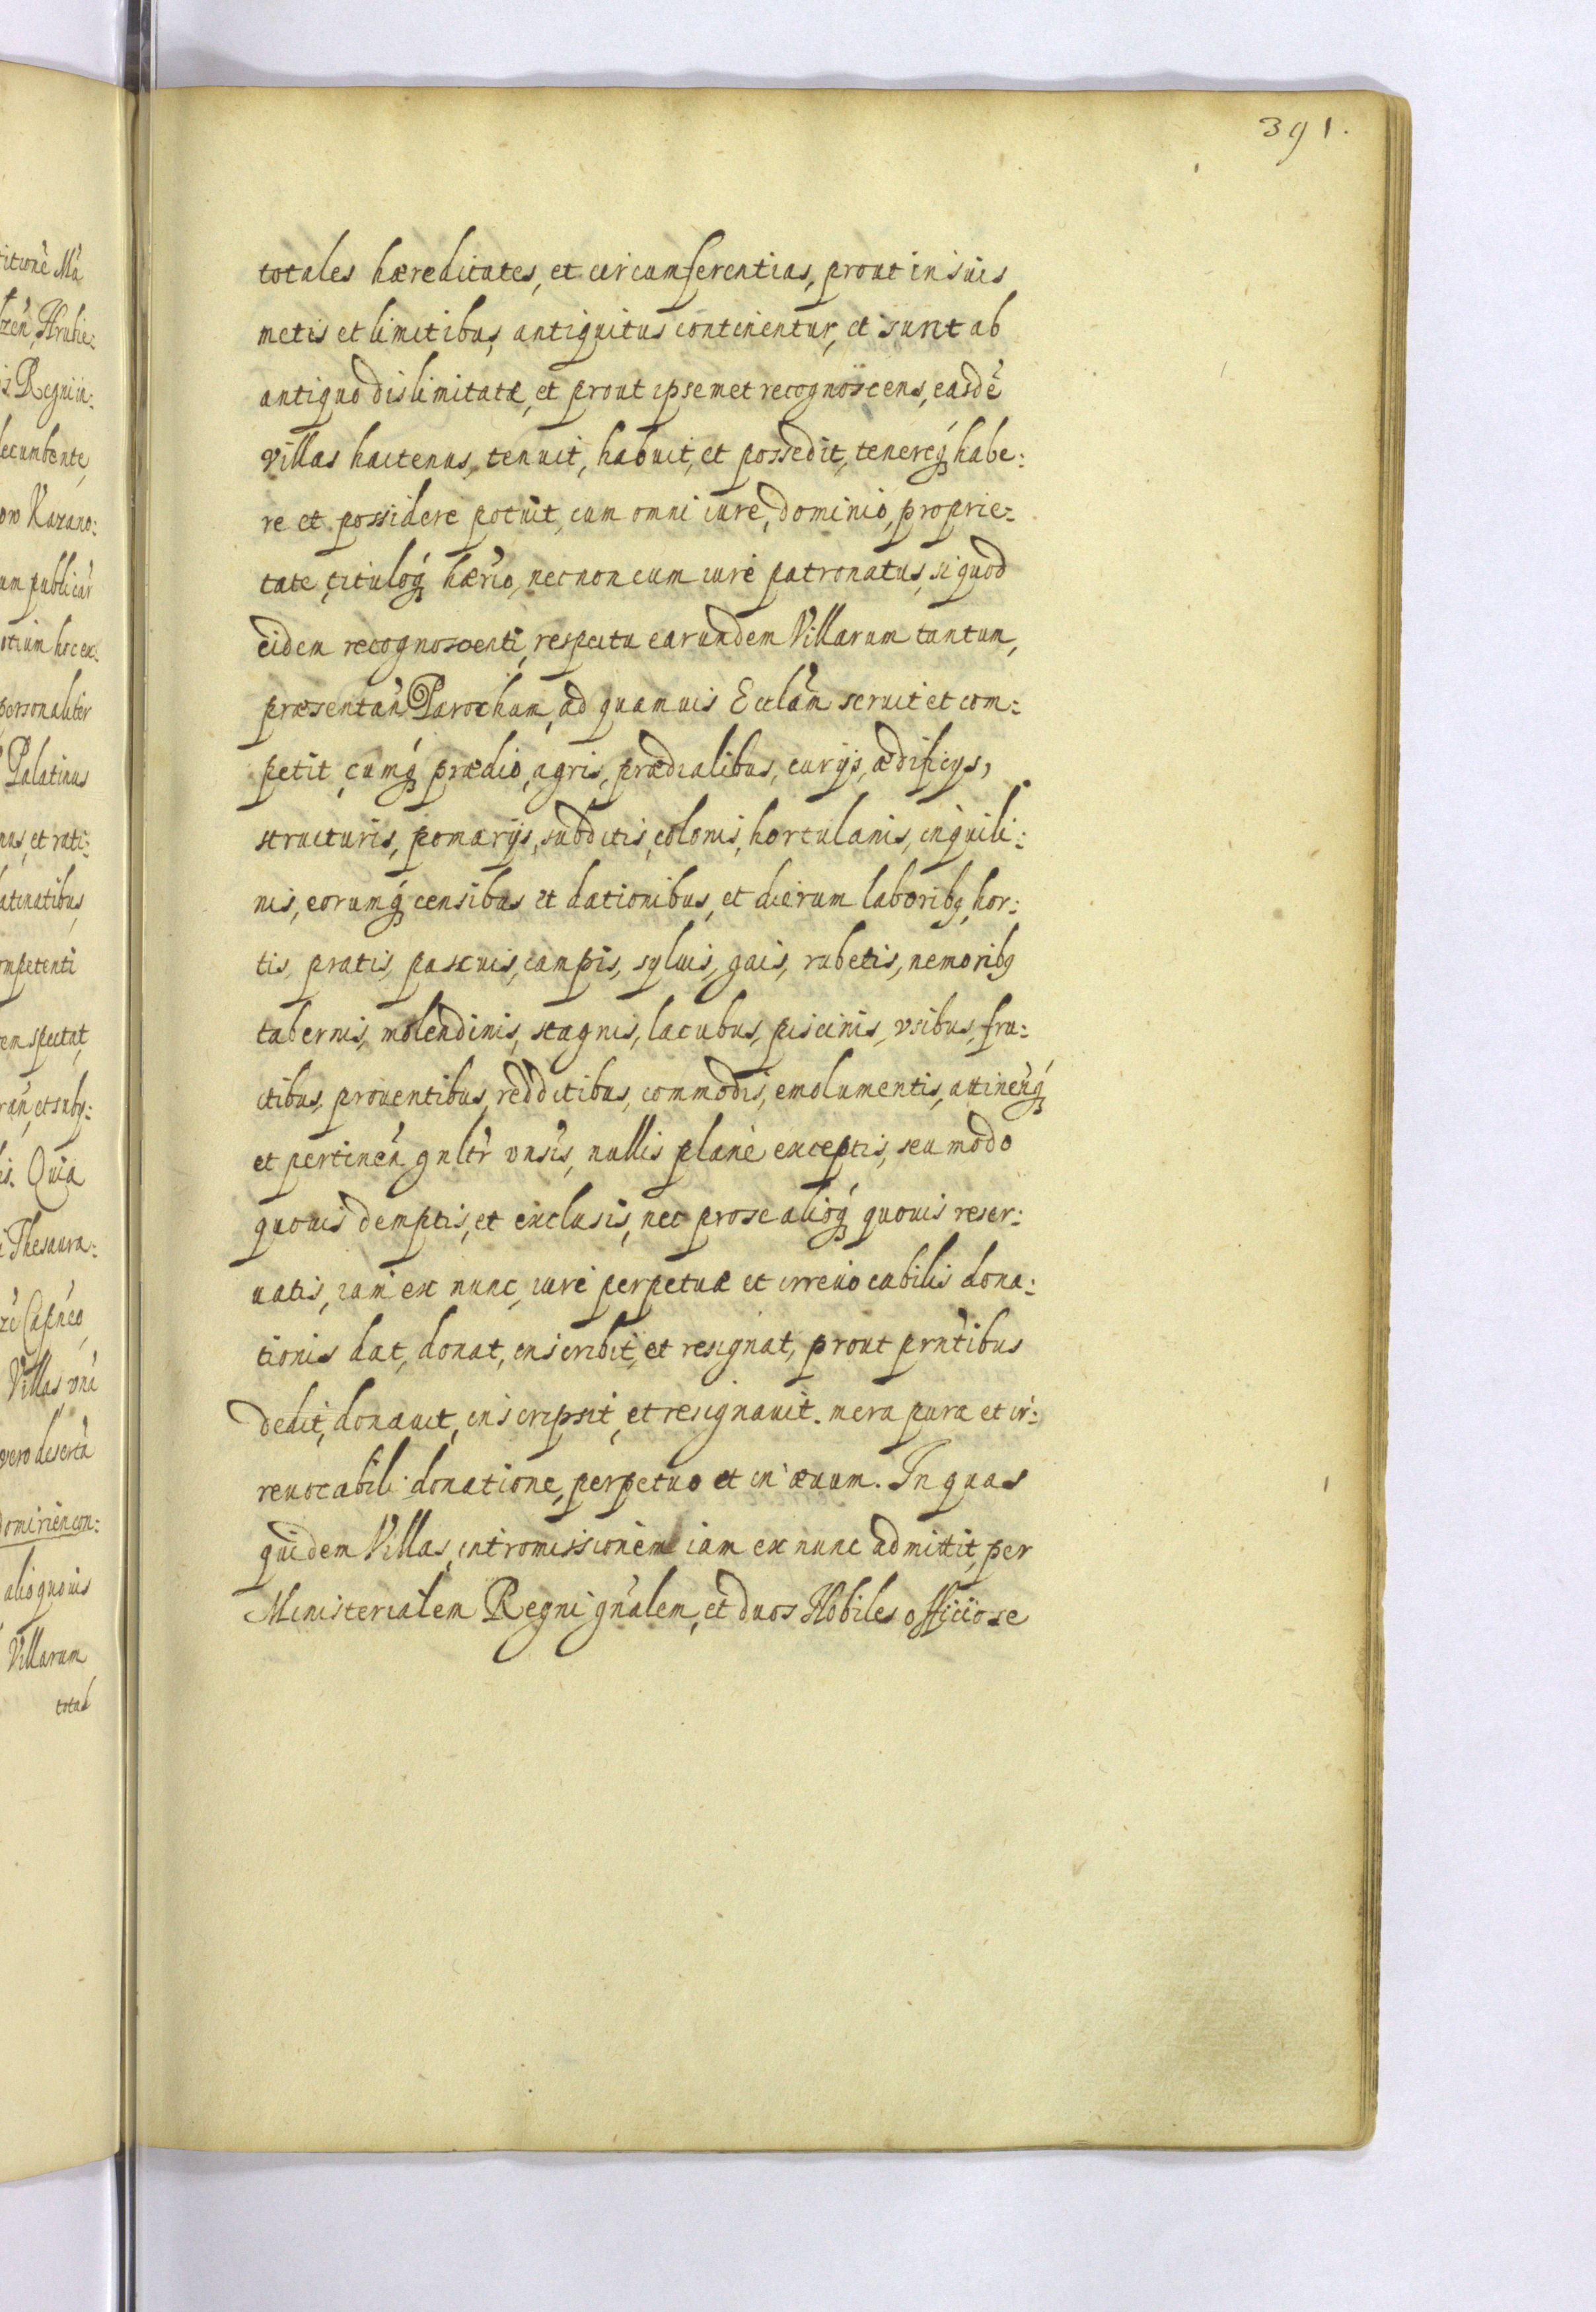 391.
totales hæreditates, et circumferentias, prout in suis
metis et limitibus, antiquitus continentur, et sunt ab
antiquo dislimitatæ, et prout ipsemet recognoscens, easdē
villas hactenus, tenuit, habuit, et possedit, tenereq́ꝫ habe:
re et possidere potuit, cum omni iure, dominio, proprie:
tate, tituloq́ꝫ hær̃io, necnon cum iure patronatus, si quod
eidem recognoscenti, respectu earundem Villarum tantum,
præsentañ Parochum, ad quamuis Ecclãm seruit et com:
petit, cumq́ꝫ prædio, agris, prædialibus, curijs, ædificijs,
structuris, pomarijs, subditis, colonis, hortulanis, inquili:
nis, eorumq́ꝫ censibus et dationibus, et dierum laboribꝫ, hor:
tis, pratis, pascuis, campis, syluis, gais, rubetis, nemoribꝫ
tabernis, molendinis, stagnis, lacubus, piscinis, vsibus, fru:
ctibus, prouentibus, redditibus, commodis, emolumentis, attineñq́ꝫ
et pertineñ gnltr̃ vnsis̃, nullis planè exceptis, seu modo
quouis demptis, et exclusis, nec pro se alioq́ꝫ quouis reser:
uatis, iam ex nunc, iure perpetuæ et irreuocabilis dona:
tionis dat, donat, inscribit, et resignat, prout prñtibus
dedit, donauit, inscripsit, et resignauit. mera pura et ir:
reuocabili donatione, perpetuo et in æuum. In quas
quidem Villas, intromissionem iam ex nunc admittit, per
Ministerialem Regni gñalem, et duos Nobiles officiose